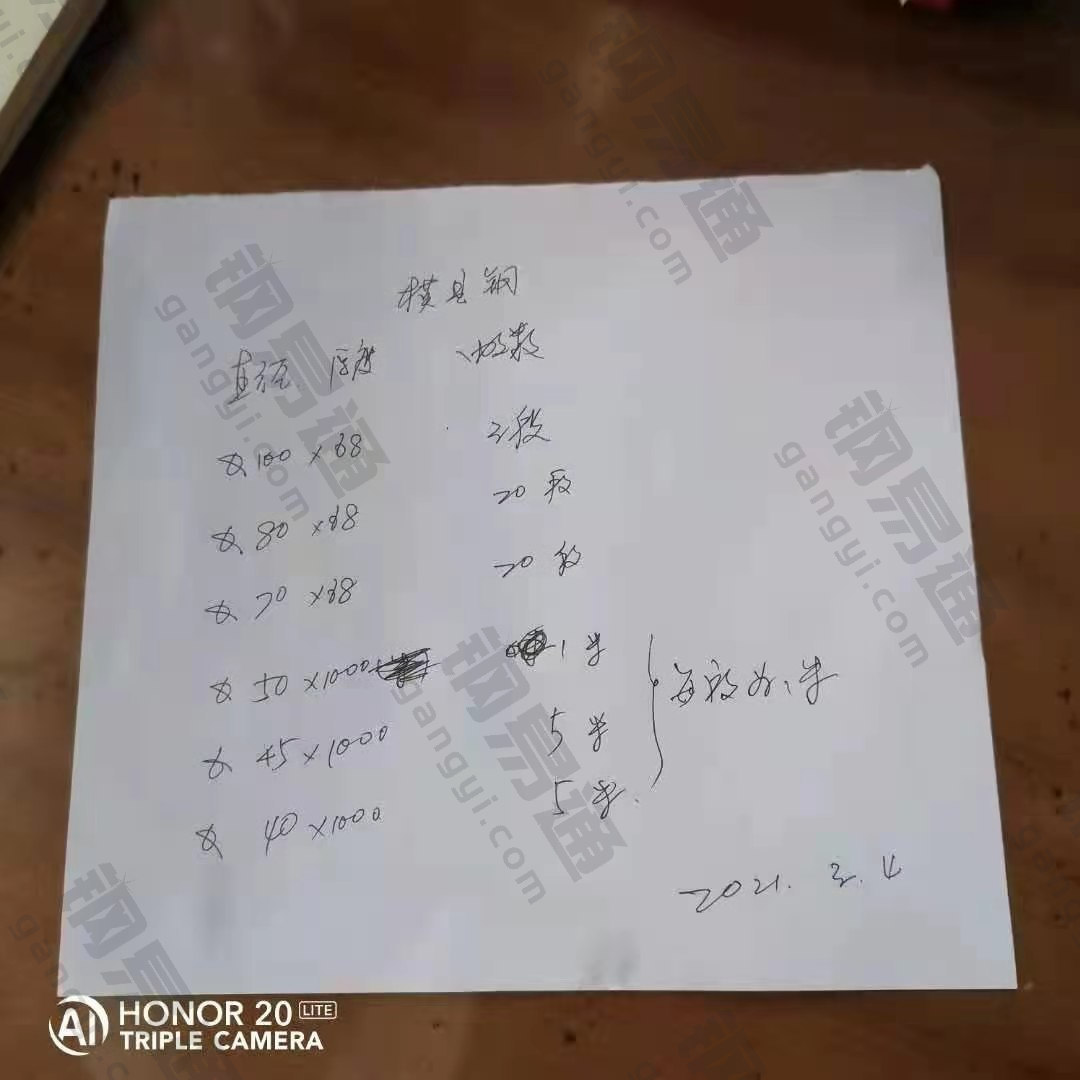 模具钢
直径 厚度 段数
φ100×88 2段
φ80×88 20段
φ70×88 20段
φ50×1000 1米
φ45×1000 5米 每段为1米
φ40×1000 5米
2021. 3. 4
钢易通
gangyi.com
钢易通
gangyi.com
钢易通
gangyi.com
钢易通
gangyi.com
钢易通
gangyi.com
钢易通
gangyi.com
HONOR 20 LITE
AI TRIPLE CAMERA